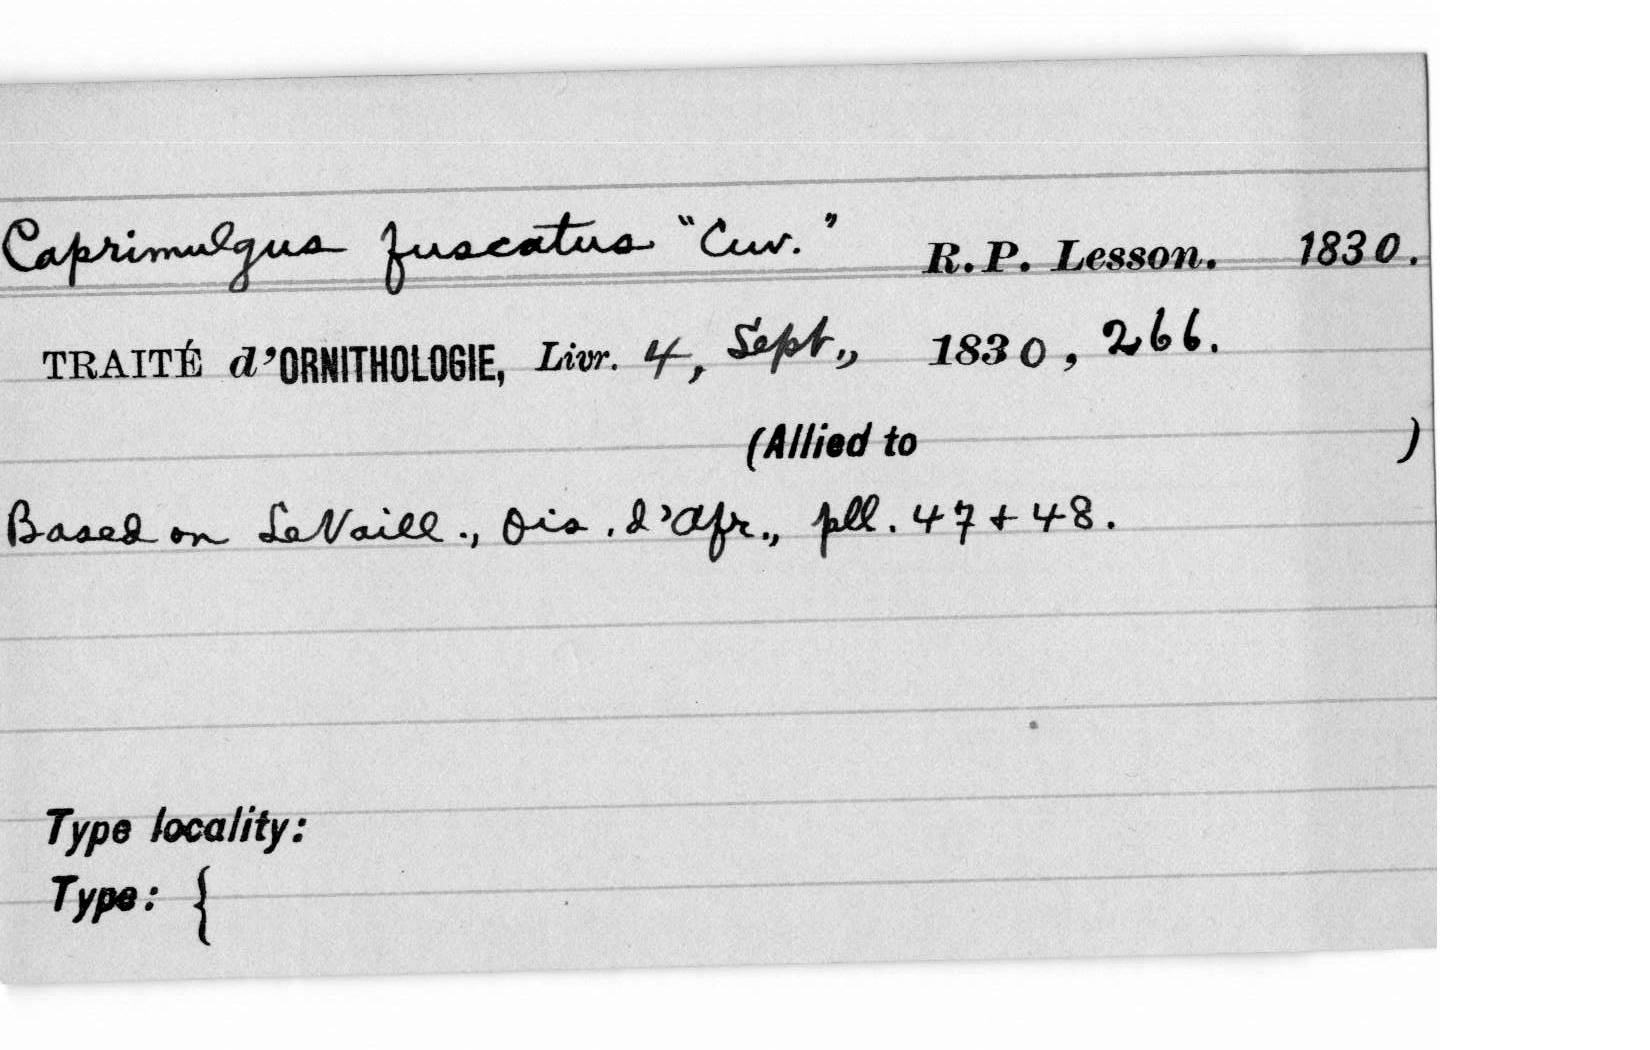 Caprimulgus fuscatus "Cuv." R.P. Lesson. 1830.
TRAITÉ d'ORNITHOLOGIE, Livr. 4, Sept., 1830, 266.
(Allied to )
Based on LeVaill., Ois. d'Afr., pll. 47 + 48.
Type locality:
Type: {